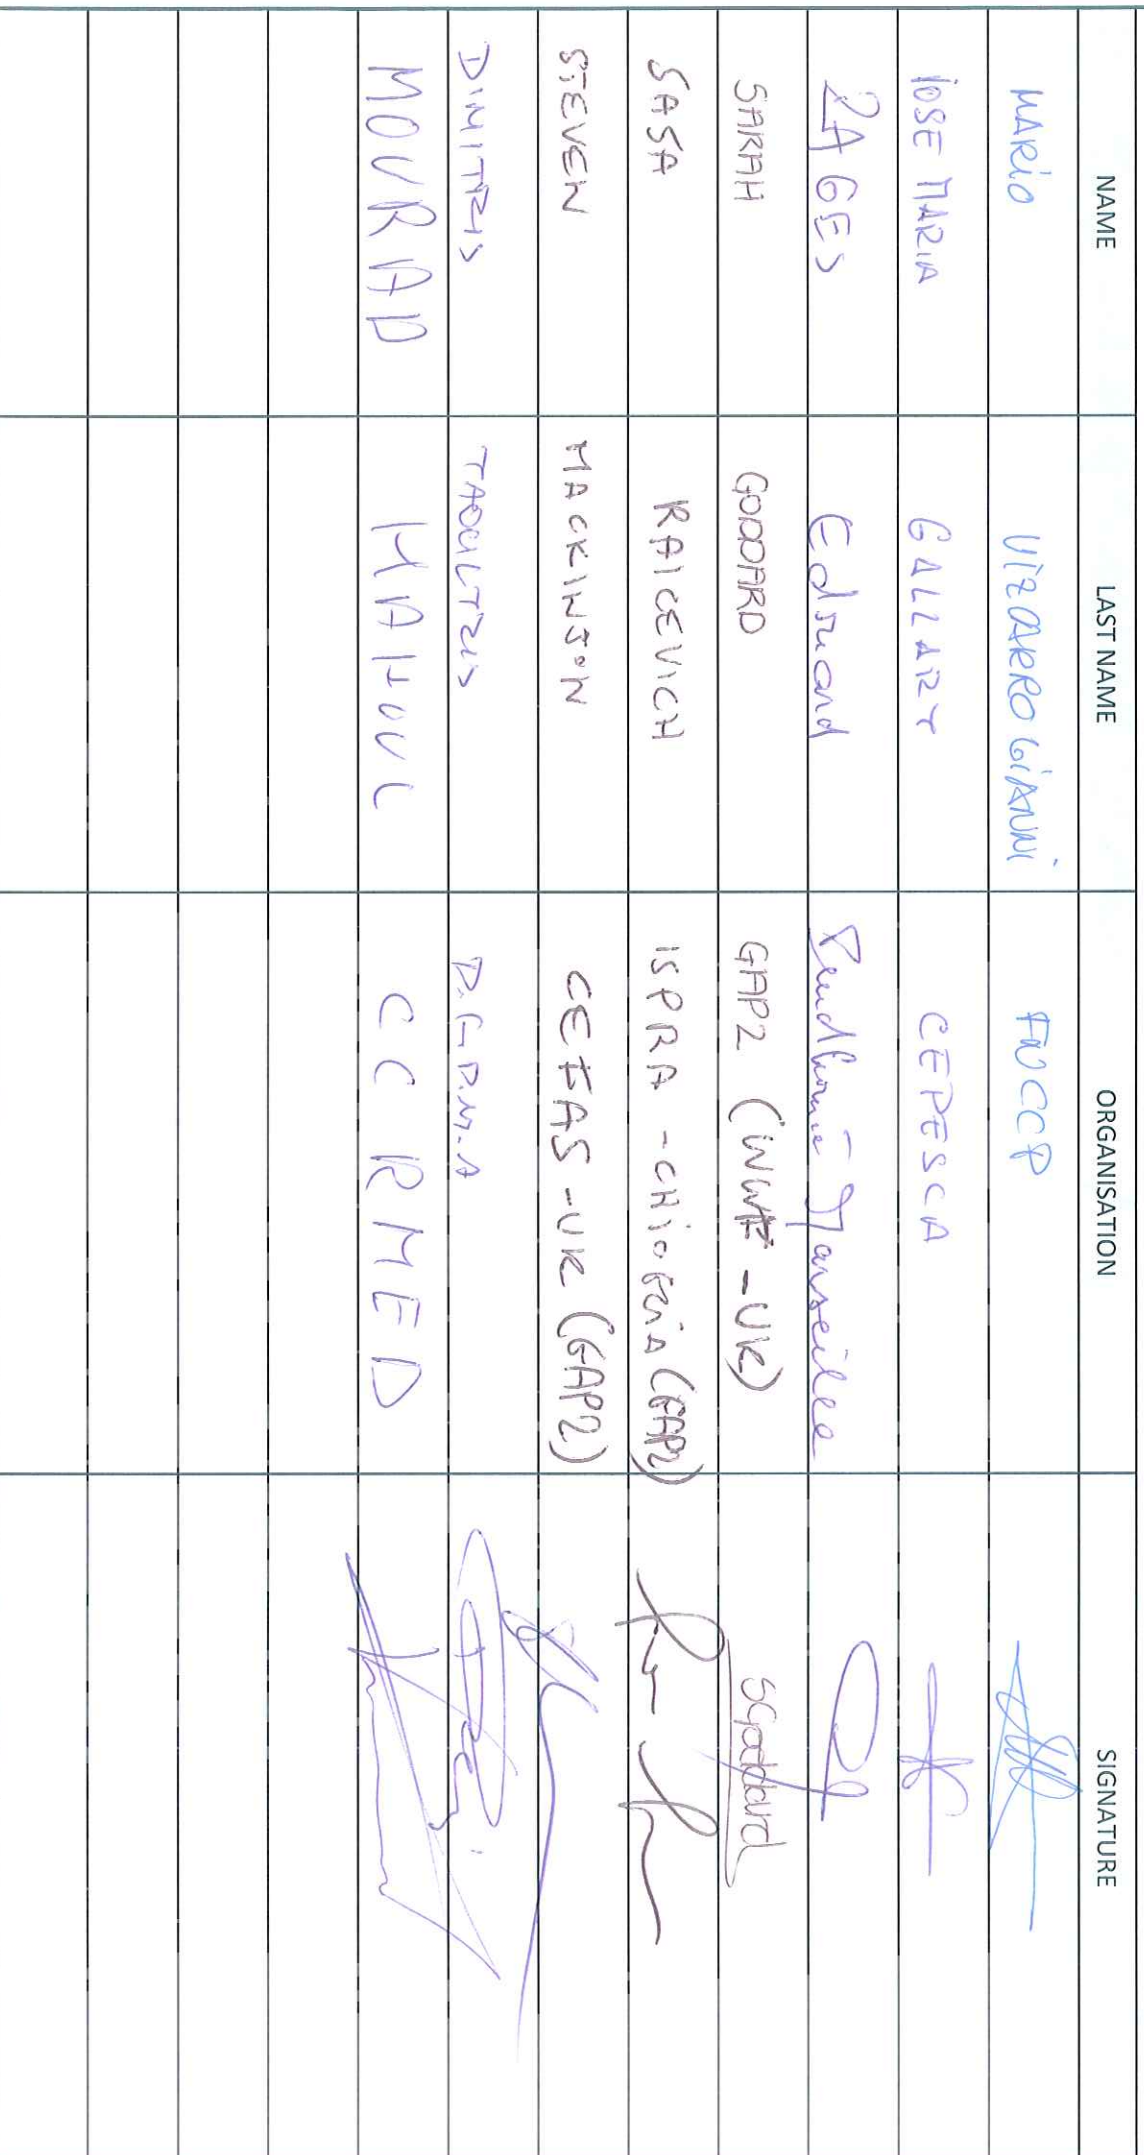 NAME LAST NAME ORGANISATION SIGNATURE
MARIO VIZCARRO GIANNI FNCCP
JOSE MARIA GALLART CEPESCA
ZAGES Edouard Prudhomie - Marseille
SARAH GODDARD GAP2 (WWF-UK) SGoddard
SASA RAICEVICH ISPRA - CHIOGGIA (GAP2)
STEVEN MACKINSON CEFAS-UK (GAP2)
DIMITRIS D.G.D.M.A
MOURAD MAHOUL CCRMED